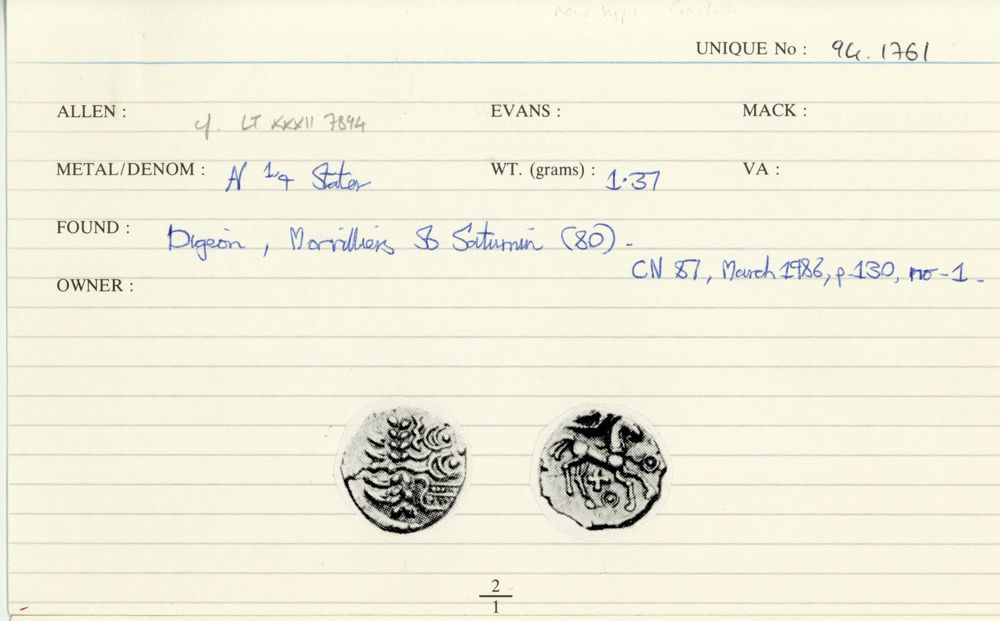 new type
UNIQUE No : 94.1761
ALLEN : cf. LT XXXII 7894 EVANS : MACK :
METAL/DENOM : N 1/4 Stater WT. (grams) : 1·37 VA :
FOUND : Digeon, Morvilliers St Saturnin (80).
CN 87, March 1986, p.130, no-1.
OWNER :
2
1